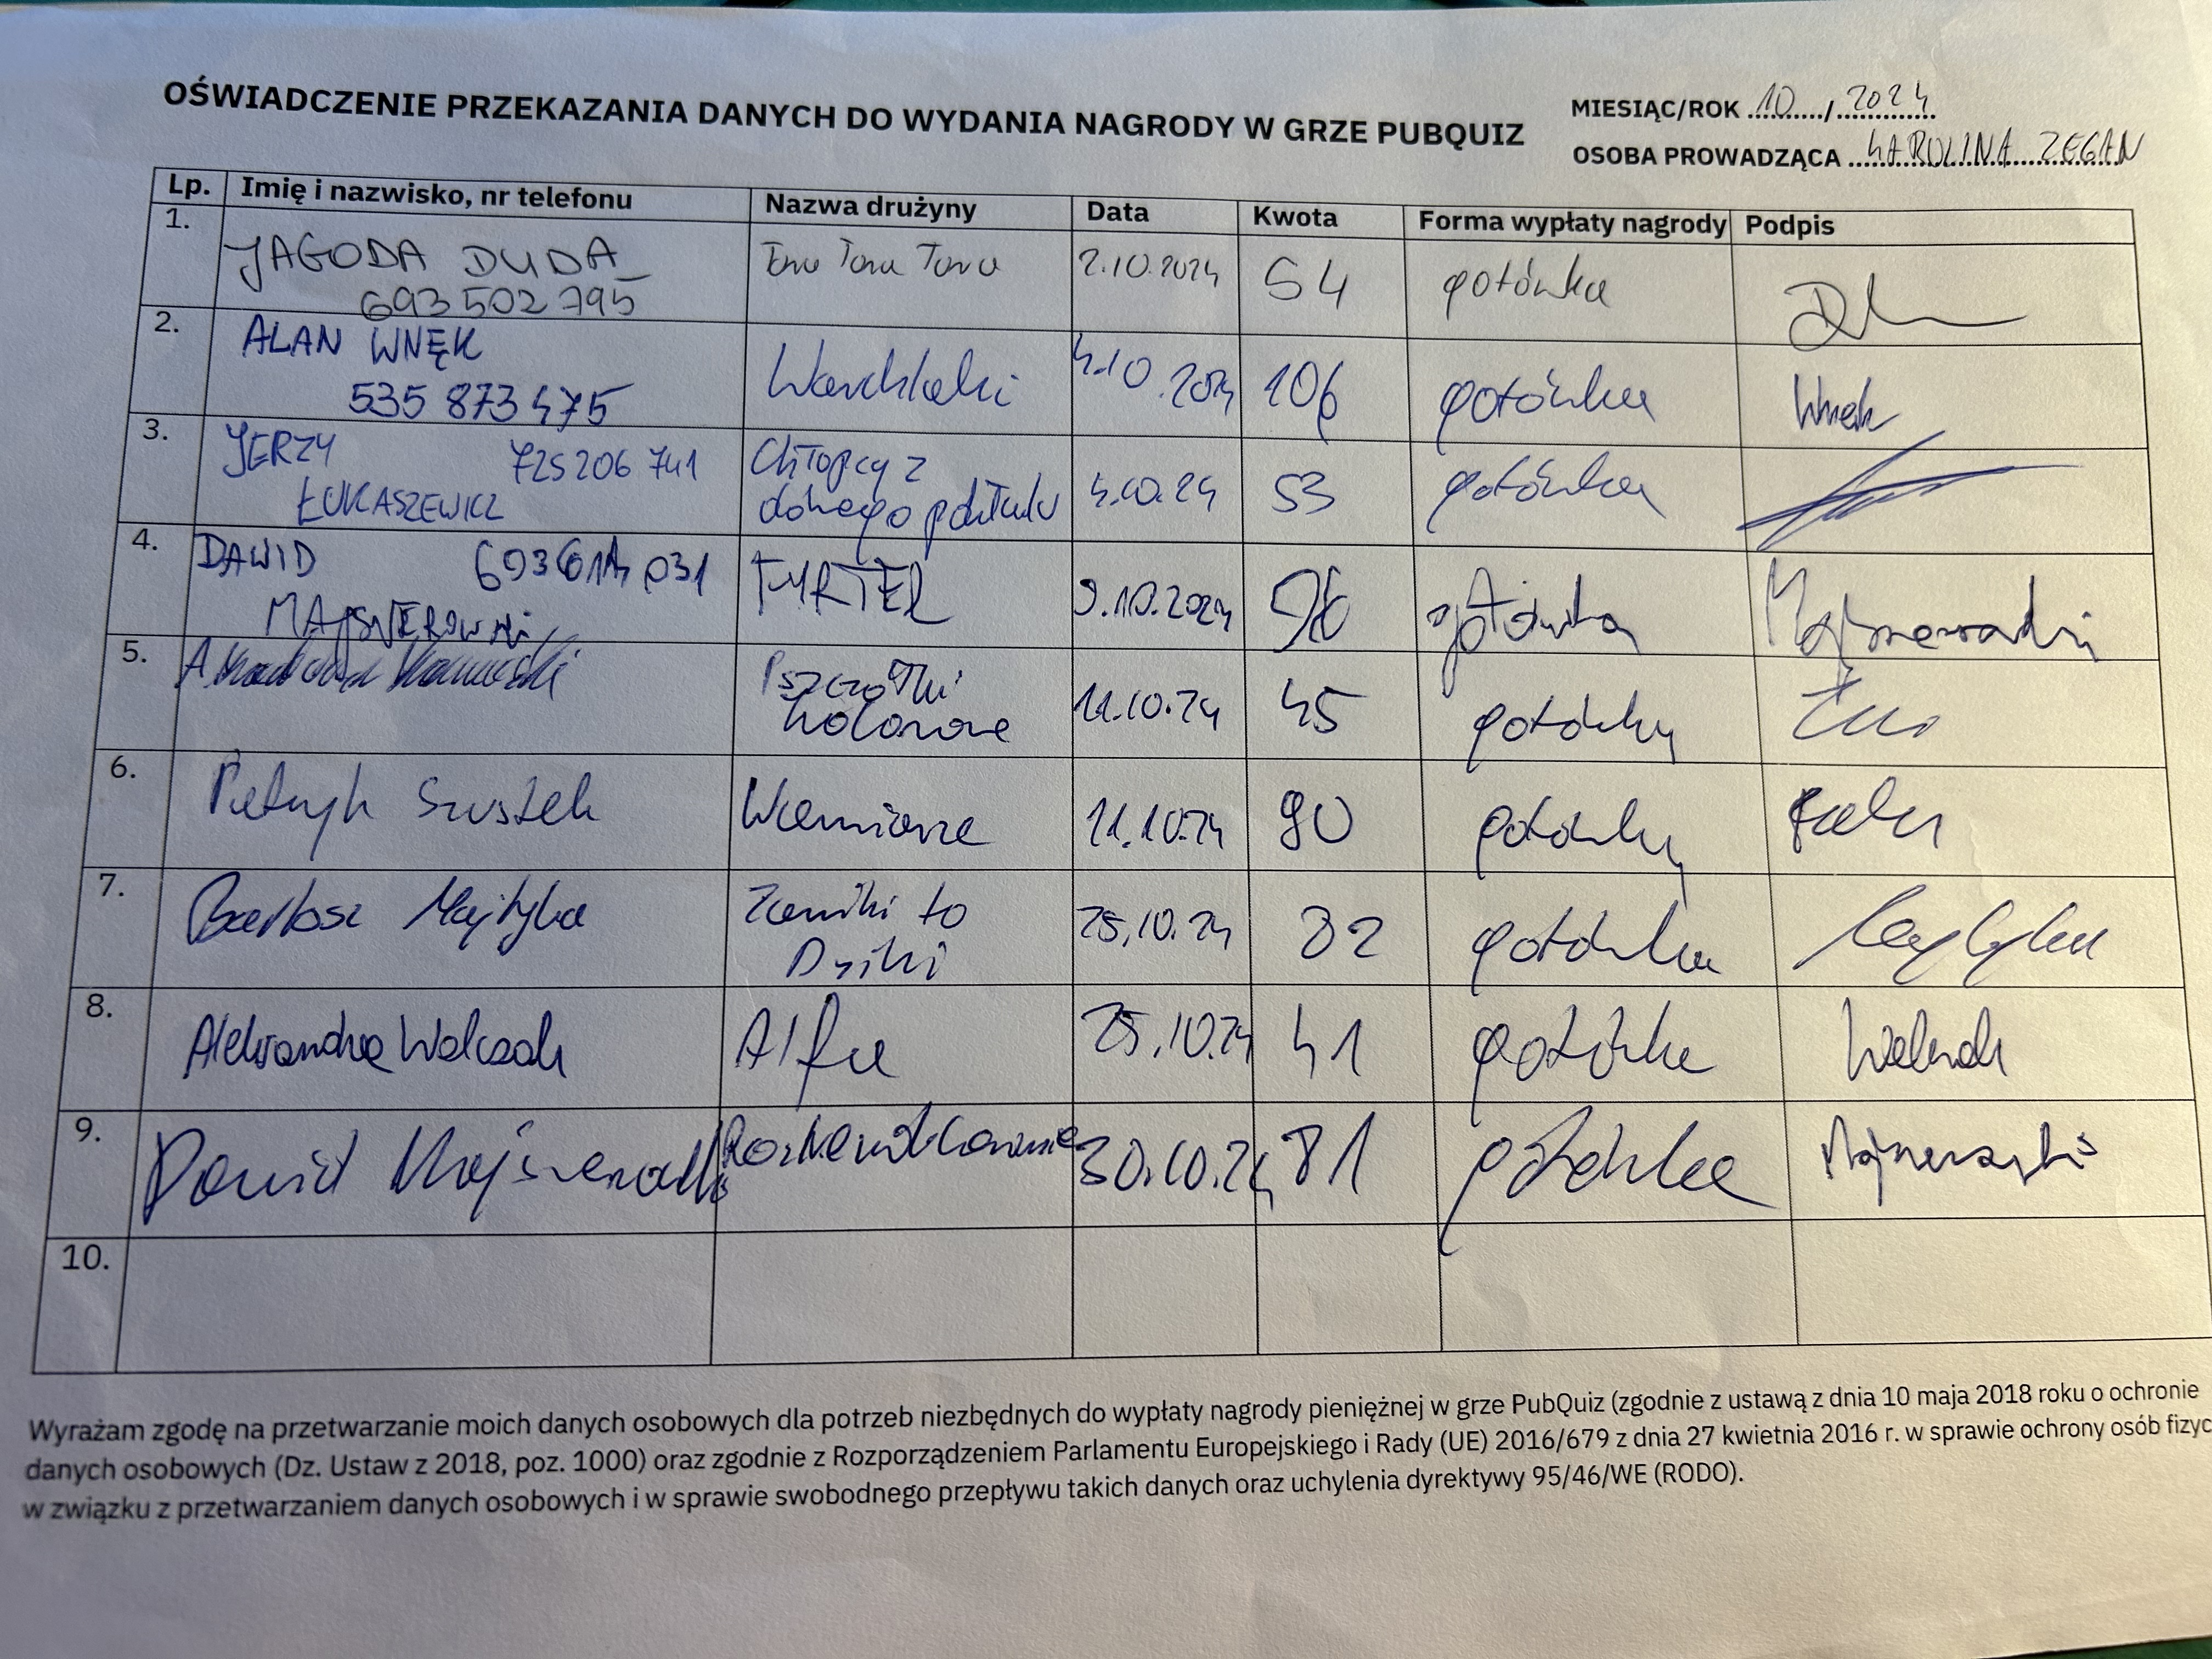 OŚWIADCZENIE PRZEKAZANIA DANYCH DO WYDANIA NAGRODY W GRZE PUBQUIZ
MIESIĄC/ROK 10 / 2024
OSOBA PROWADZĄCA KAROLINA ZEGAN
Lp. Imię i nazwisko, nr telefonu Nazwa drużyny Data Kwota Forma wypłaty nagrody Podpis
1. JAGODA DUDA 693 502 795 Tora Tora 2.10.2024 54 gotówka
2. ALAN WNĘK 535 873 475 4.10.2024 106 gotówka Wnęk
3. JERZY ŁUKASZEWICZ 725 206 741 Chłopcy z dobrego 4.10.24 53 gotówka
4. DAWID 9.10.2024 96 gotówka
5. Pszczółki kolorowe 11.10.24 45 gotówka
6. Patryk Szustek 11.10.24 90 gotówka
7. Bartosz Majtyka to Dziki 25.10.24 82 gotówka
8. Aleksandra Walczak Alfa 25.10.24 41 gotówka Walczak
9. Dawid 30.10.24 81 gotówka
10.
Wyrażam zgodę na przetwarzanie moich danych osobowych dla potrzeb niezbędnych do wypłaty nagrody pieniężnej w grze PubQuiz (zgodnie z ustawą z dnia 10 maja 2018 roku o ochronie
danych osobowych (Dz. Ustaw z 2018, poz. 1000) oraz zgodnie z Rozporządzeniem Parlamentu Europejskiego i Rady (UE) 2016/679 z dnia 27 kwietnia 2016 r. w sprawie ochrony osób fizyc
w związku z przetwarzaniem danych osobowych i w sprawie swobodnego przepływu takich danych oraz uchylenia dyrektywy 95/46/WE (RODO).